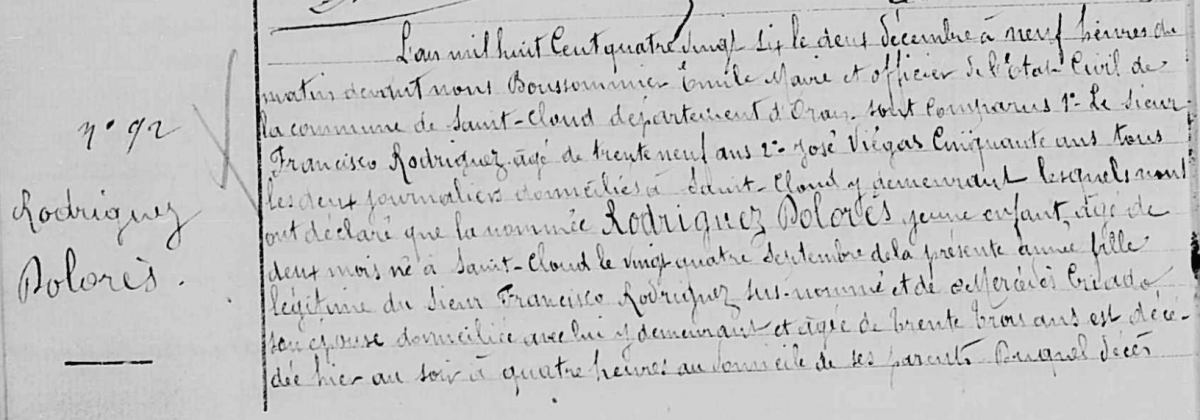 n° 92
Rodriguez
Dolorès.
L'an mil huit Cent quatre vingt six le deux décembre à neuf heures du
matin devant nous Boussommier Émile Maire et officier de l'état Civil de
la commune de Saint-Cloud département d'Oran. sont comparus 1° Le Sieur
Francisco Rodriguez âgé de trente neuf ans 2° José Viégas Cinquante ans tous
les deux journaliers domiciliés à Saint-Cloud y demeurant lesquels nous
ont déclaré que la nommée Rodriguez Dolorès jeune enfant, âgé de
deux mois né à Saint-Cloud le vingt quatre Septembre de la présente année fille
légitime du Sieur Francisco Rodriguez sus-nommé et de Mercédès Criado
son épouse domiciliée avec lui y demeurant et âgée de trente trois ans est décé-
dée hier au soir à quatre heures au domicile de ses parents Duquel décès